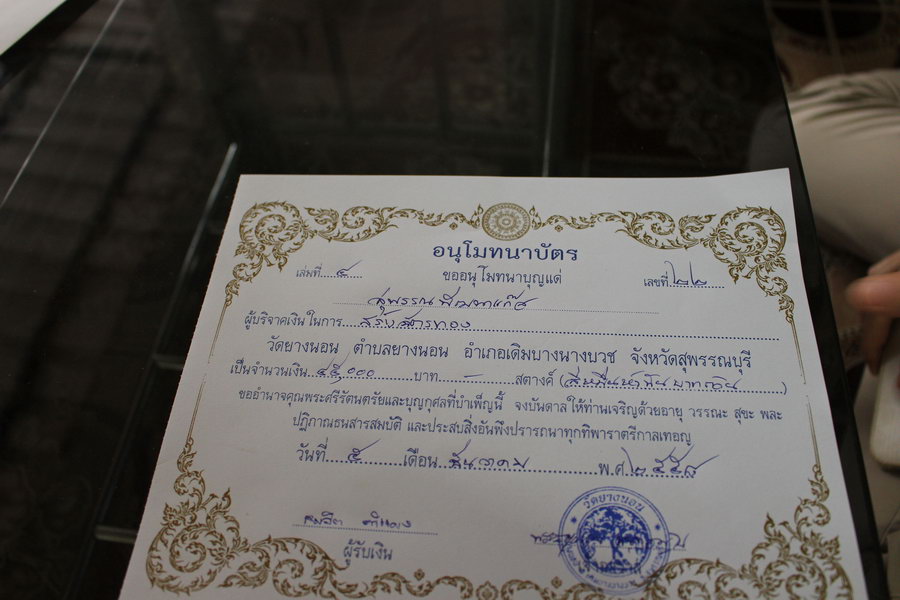 อนุโมทนาบัตร
เล่มที่ ๔ ขออนุโมทนาบุญแด่ เลขที่ ๒๒
สุพรรณ
ผู้บริจาคเงินในการ สร้าง
วัดยางนอน ตำบลยางนอน อำเภอเดิมบางนางบวช จังหวัดสุพรรณบุรี
เป็นจำนวนเงิน ๔๕,๐๐๐ บาท - สตางค์ (สี่หมื่นห้าพันบาทถ้วน)
ขออำนาจคุณพระศรีรัตนตรัยและบุญกุศลที่บำเพ็ญนี้ จงบันดาลให้ท่านเจริญด้วยอายุ วรรณะ สุขะ พละ
ปฏิภาณธนสารสมบัติ และประสบสิ่งอันพึงปรารถนาทุกทิพาราตรีกาลเทอญ
วันที่ ๕ เดือน ธันวาคม พ.ศ. ๒๕๕๘
ผู้รับเงิน
วัดยางนอน